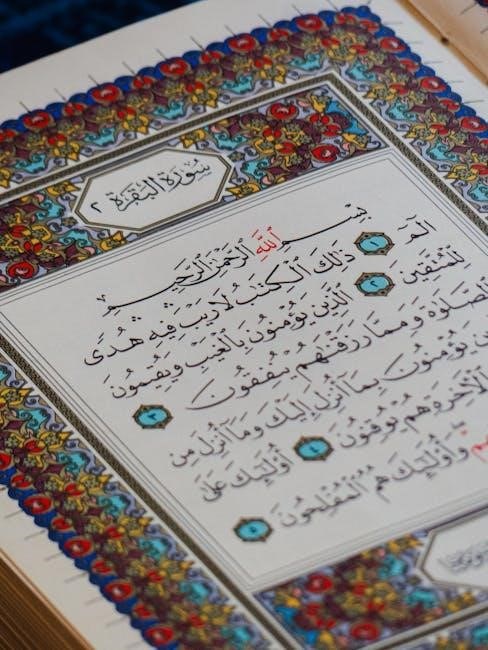 سُورَةُ البَقَرَةِ ٢
بِسْمِ ٱللَّهِ ٱلرَّحْمَٰنِ ٱلرَّحِيمِ
الٓمٓ ١ ذَٰلِكَ ٱلْكِتَٰبُ لَا رَيْبَ فِيهِ هُدًى
لِلْمُتَّقِينَ ٢ ٱلَّذِينَ يُؤْمِنُونَ بِٱلْغَيْبِ وَيُقِيمُونَ
ٱلصَّلَوٰةَ وَمِمَّا رَزَقْنَٰهُمْ يُنْفِقُونَ ٣
يُؤْمِنُونَ بِمَآ أُنْزِلَ إِلَيْكَ وَمَآ أُنْزِلَ مِنْ
ٱلْأَخِرَةِ هُمْ يُوقِنُونَ ٤ أُولَٰٓئِكَ عَلَىٰ
وَأُولَٰٓئِكَ هُمُ ٱلْمُفْلِحُونَ ٥